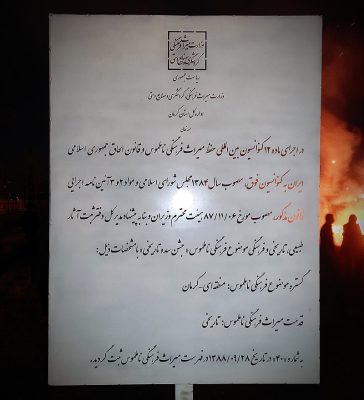 وزارت میراث فرهنگی
گردشگری و صنایع دستی
ریاست جمهوری
وزارت میراث فرهنگی، گردشگری و صنایع دستی
اداره کل استان کرمان
بسمه تعالی
در اجرای ماده ۱۲ کنوانسیون بین المللی حفظ میراث فرهنگی ناملموس و قانون الحاق جمهوری اسلامی
ایران به کنوانسیون فوق، مصوب سال ۱۳۸۴ مجلس شورای اسلامی و مواد ۲ و ۳ آئین نامه اجرایی
قانون مذکور، مصوب مورخ ۸۷/۱۱/۰۶ هیئت محترم وزیران و بنا به پیشنهاد مدیرکل دفتر ثبت آثار
طبیعی، تاریخی و فرهنگی موضوع فرهنگی ناملموس: «جشن سده تاریخی» با مشخصات ذیل:
گستره موضوع فرهنگی ناملموس: منطقه‌ای-کرمان
قدمت میراث فرهنگی ناملموس: تاریخی
به شماره «۴۰» در تاریخ ۱۳۸۸/۰۹/۲۸ در فهرست میراث فرهنگی ناملموس ثبت گردید.